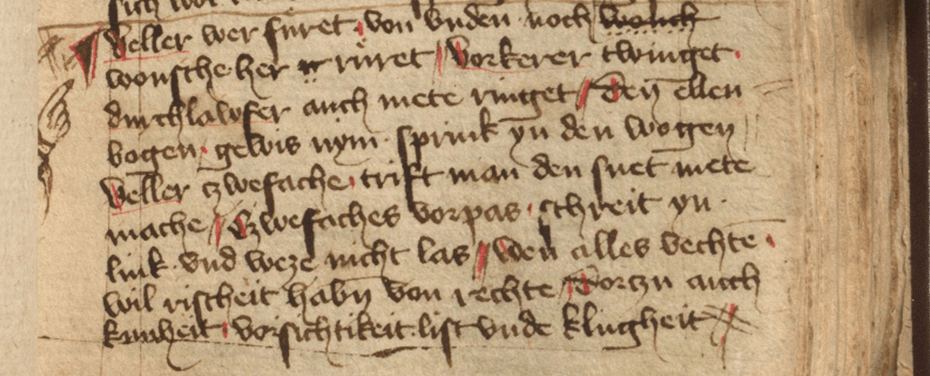 Veller wer füret von vnden noch wonsch
wonsche her rüret Vorkerer twinget
durchlawfer auch mete ringet Den ellen
bogen gewis nym sprink yn den wogen
Veller czwefache trift man den snet mete
mache Czwefaches vorpas schreit yn
link vnd weze nicht las Wen alles vechten
wil rischeit habn von rechte Dorczu auch
kunheit vorsichtikeit list vnde klugheit